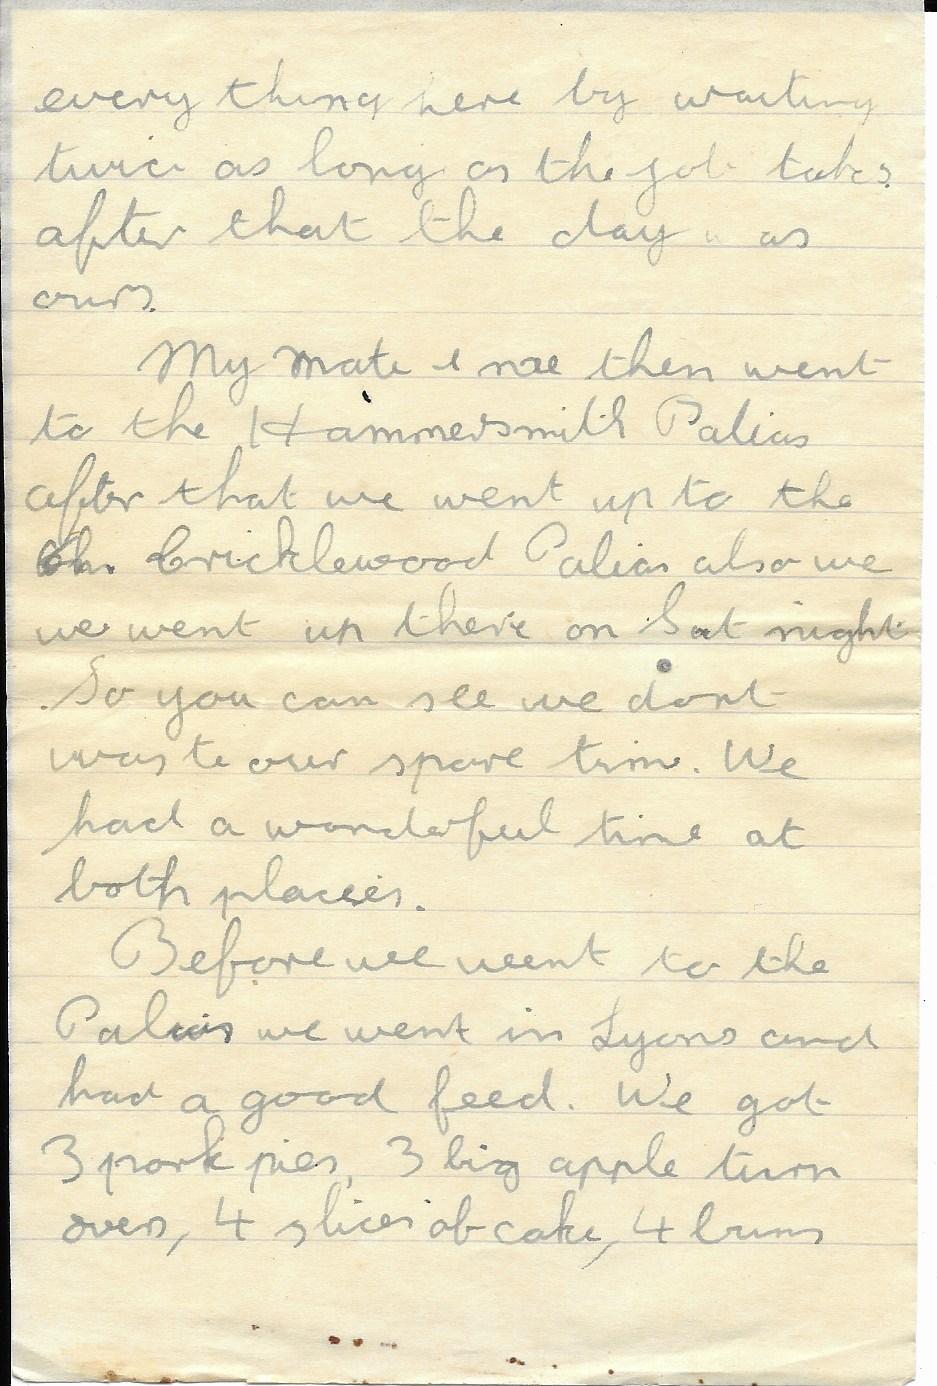 every thing here by waiting
twice as long as the job takes
after that the day was
ours.
My mate & me then went
to the Hammersmith Palias
after that we went up to the
Cricklewood Palias also we
we went up there on Sat night
. So you can see we dont
waste our spare time. We
had a wonderful time at
both places.
Before we went to the
Palais we went in Lyons and
had a good feed. We got
3 pork pies, 3 big apple turn
overs, 4 slices of cake, 4 buns